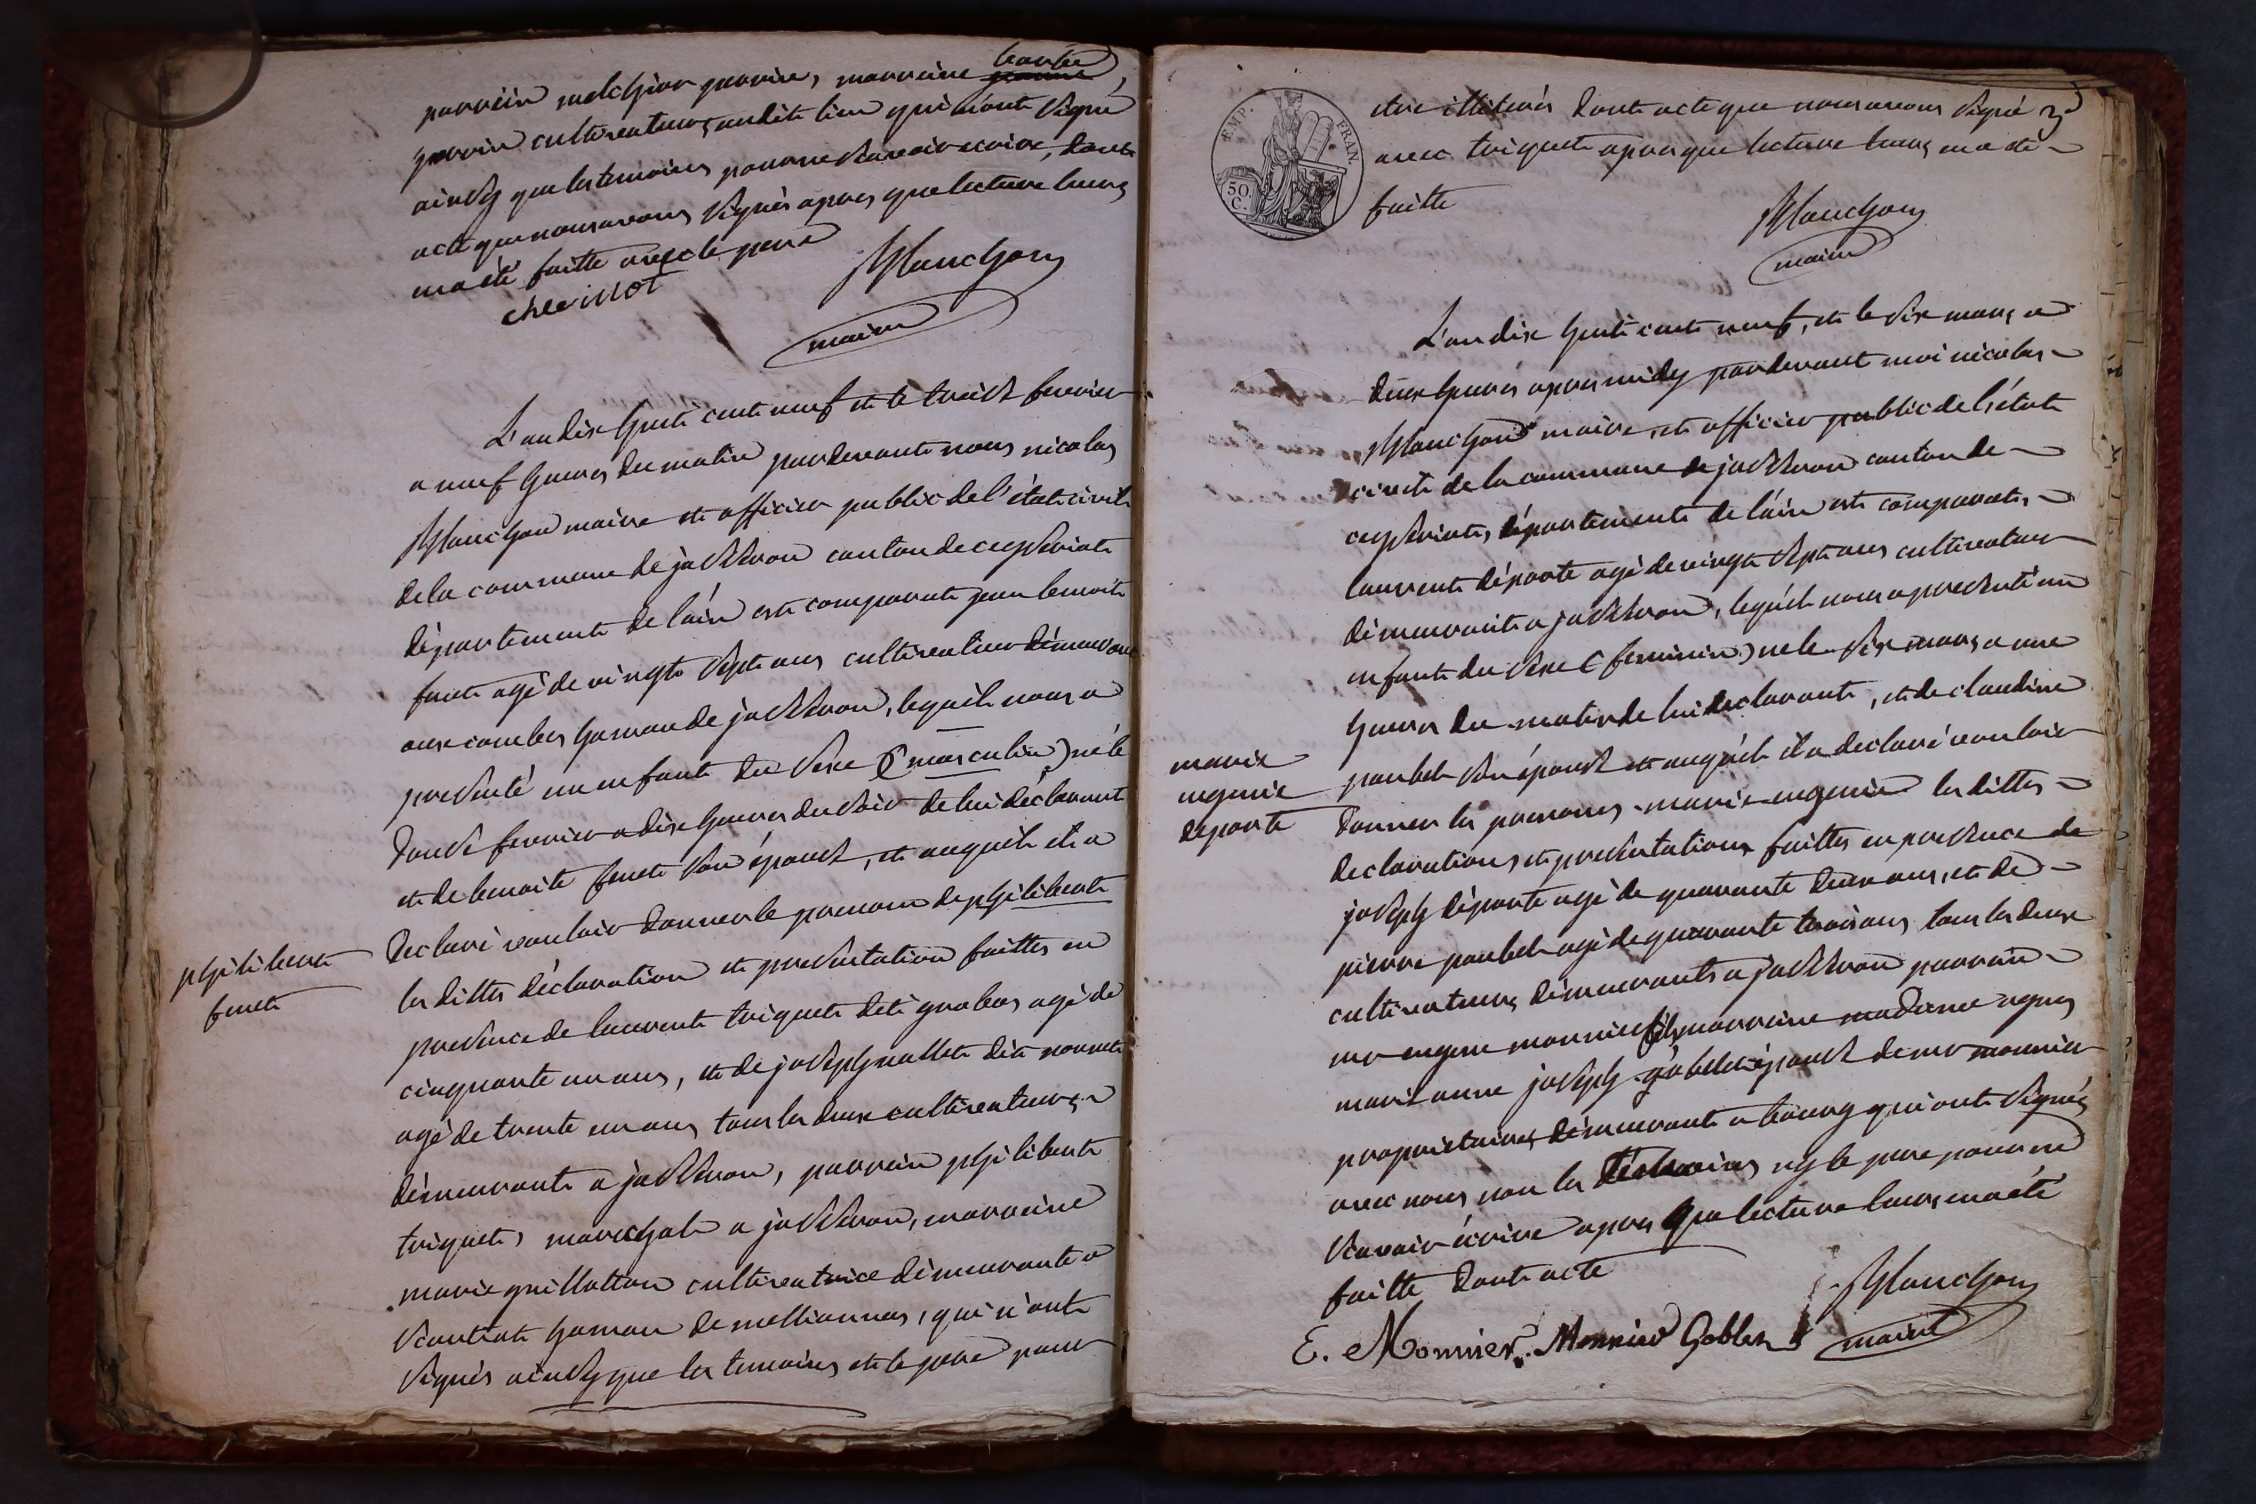 parrein melchior perrin, marreine
perrin cultivateurs audit lieu qui n'ont signé
ainsy que les temoins pour ne scavoir ecrire, dont
acte que nous avons signés apres que lecture leurs
en a été faitte avec le pere
chevillot
Planchon
maire
L'an dix huit cent neuf et le treize fevrier
a neuf heures du matin pardevant nous nicolas
Planchon maire et officier public de l'état civil
de la commune de jasseron canton de ceyseriat
département de l'ain est comparut jean benoit
furet agé de vingt sept ans cultivateur demeurant
aux combes hameau de jasseron, lequel nous a
presenté un enfant du sexe (masculin) né le
douze fevrier a dix heures du soir de lui déclarant
et de benoite furet son épouse, et auquel il a
declaré vouloir donner le prenom de philibert
philibert
furet
les dittes déclaration et presentation faittes en
presence de laurent triquet dit grabas agé de
cinquante un ans, et de joseph nallet dit
agé de trente un ans tous les deux cultivateurs
démeurants a jasseron, parrein philibert
triquet, marechal a jasseron, marreine
marie guillotton cultivatrice démeurante a
sanciat hameau de meillonnas, qui n'ont
signés ainsy que les temoins et le pere pour
EMP. FRAN.
50. C.
etre illiterés dont acte que nous avons signé
avec triquet apres que lecture leurs en a été
faitte
3
Planchon
maire
L'an dix huit cent neuf, et le six mars a
deux heures apres midy pardevant moi nicolas
Planchon maire et officier public de l'état
civil de la commune de jasseron canton de
ceyseriat, département de l'ain est comparut,
laurent déporte agé de vingt sept ans cultivateur
démeurant a jasseron, lequel nous a presenté un
enfant du sexe (feminin) né le six mars a une
heures du matin de lui declarant, et de claudine
paubel son épouse et auquel il a declaré vouloir
marie
eugenie
deporte
donner les prenoms marie eugenie les dittes
declarations et presentations faittes en presence de
joseph déporte agé de quarante deux ans, et de
pierre paubel agé de quarante trois ans tous les deux
cultivateurs démeurants a jasseron parrain
mr eugene monnier fils marreine madame agnes
marianne joseph goblet épouse de mr monnier
proprietaires démeurants a bourg qui ont signés
avec nous non les témoins ny le pere pour ne
scavoir écrire apres que lecture leurs en a été
faitte dont acte
Planchon
maire
E. Monnier. Monnier Goblet